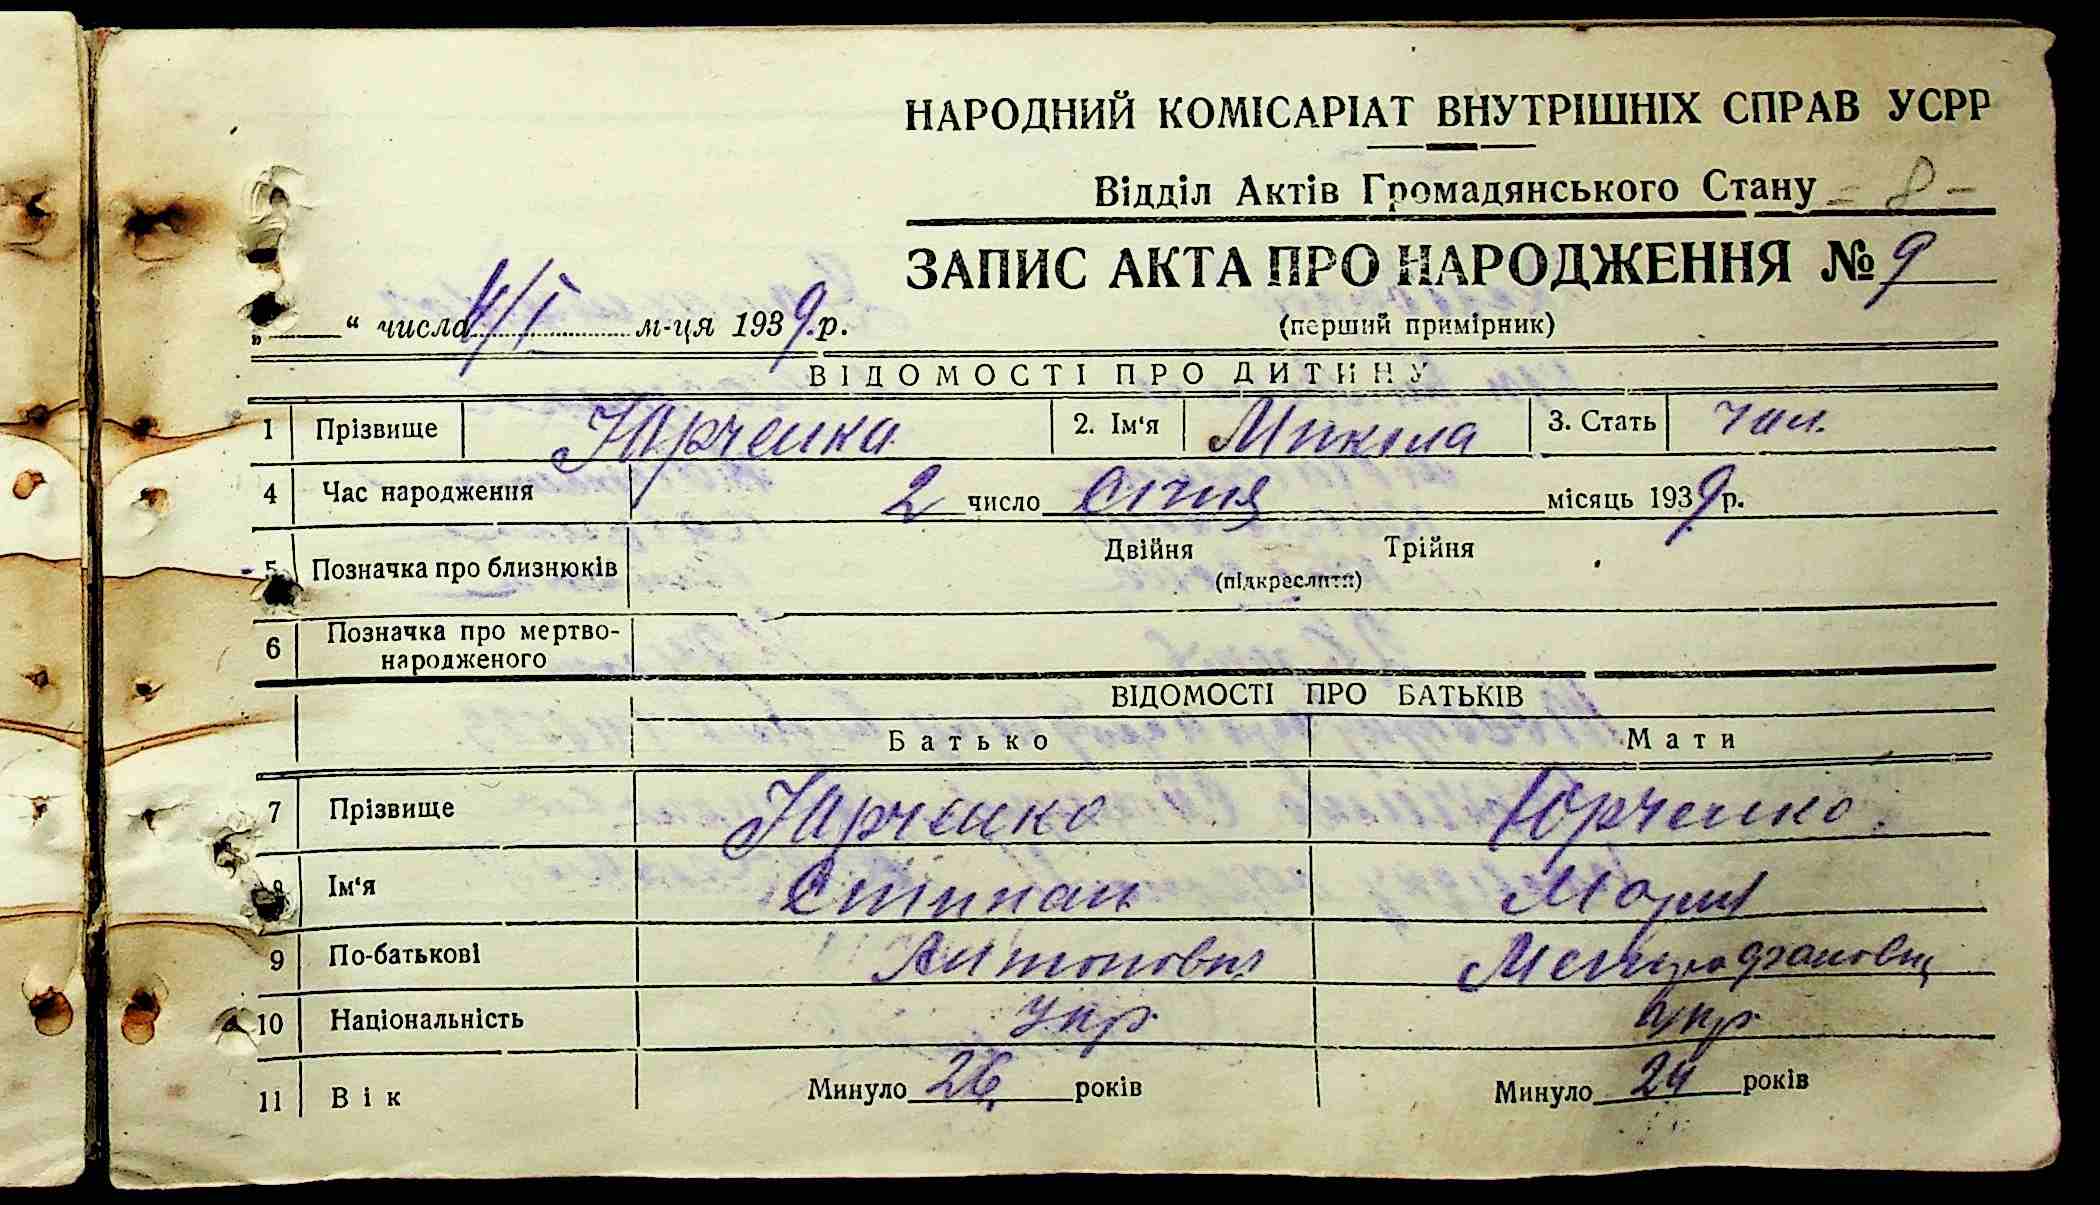 НАРОДНИЙ КОМІСАРІАТ ВНУТРІШНІХ СПРАВ УСРР
Відділ Актів Громадянського Стану - 8 -
ЗАПИС АКТА ПРО НАРОДЖЕННЯ № 9
„ “ числа 4/I м-ця 1939.р.
(перший примірник)
ВІДОМОСТІ ПРО ДИТИНУ
1 Прізвище Юрченко 2. Ім‘я Микола 3. Стать чол.
4 Час народження 2 число Січня місяць 1939 р.
5 Позначка про близнюків Двійня Трійня
(підкреслити)
6 Позначка про мертво-
народженого
ВІДОМОСТІ ПРО БАТЬКІВ
Батько Мати
7 Прізвище Юрченко Юрченко
8 Ім‘я Степан Мария
9 По-батькові Антонович
10 Національність укр укр
11 Вік Минуло 26 років Минуло 24 років